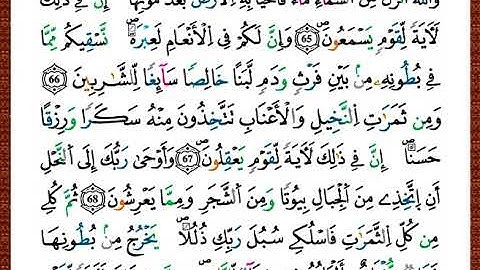 والله أنزل من السماء ماء فأحيا به الأرض بعد موتها إن في ذلك
لَآيَةً لِّقَوْمٍ يَسْمَعُونَ 65 وَإِنَّ لَكُمْ فِي الْأَنْعَامِ لَعِبْرَةً نَسْقِيكُم مِّمَّا
فِي بُطُونِهِ مِنۢ بَيْنِ فَرْثٍ وَدَمٍ لَّبَنًا خَالِصًا سَآئِغًا لِّلشَّارِبِينَ 66
وَمِن ثَمَرَاتِ النَّخِيلِ وَالْأَعْنَابِ تَتَّخِذُونَ مِنْهُ سَكَرًا وَرِزْقًا
حَسَنًا إِنَّ فِي ذَلِكَ لَآيَةً لِّقَوْمٍ يَعْقِلُونَ 67 وَأَوْحَى رَبُّكَ إِلَى النَّحْلِ
أَنِ اتَّخِذِي مِنَ الْجِبَالِ بُيُوتًا وَمِنَ الشَّجَرِ وَمِمَّا يَعْرِشُونَ 68 ثُمَّ كُلِي
مِن كُلِّ الثَّمَرَاتِ فَاسْلُكِي سُبُلَ رَبِّكِ ذُلُلًا يَخْرُجُ مِنۢ بُطُونِهَا